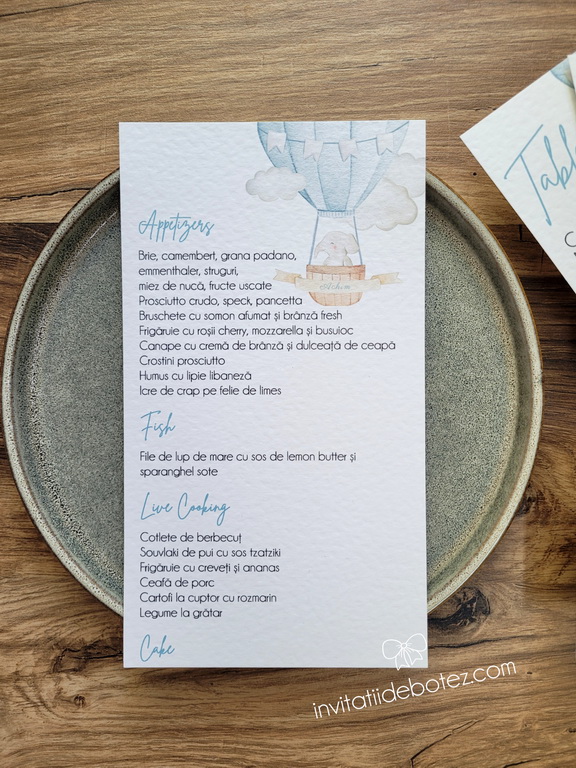 Appetizers
Brie, camembert, grana padano,
emmenthaler, struguri,
miez de nucă, fructe uscate
Prosciutto crudo, speck, pancetta
Bruschete cu somon afumat și brânză fresh
Frigăruie cu roșii cherry, mozzarella și busuioc
Canape cu cremă de brânză și dulceață de ceapă
Crostini prosciutto
Humus cu lipie libaneză
Icre de crap pe felie de limes
Fish
File de lup de mare cu sos de lemon butter și
sparanghel sote
Live Cooking
Cotlete de berbecuț
Souvlaki de pui cu sos tzatziki
Frigăruie cu creveți și ananas
Ceafă de porc
Cartofi la cuptor cu rozmarin
Legume la grătar
Cake
invitatiidebotez.com